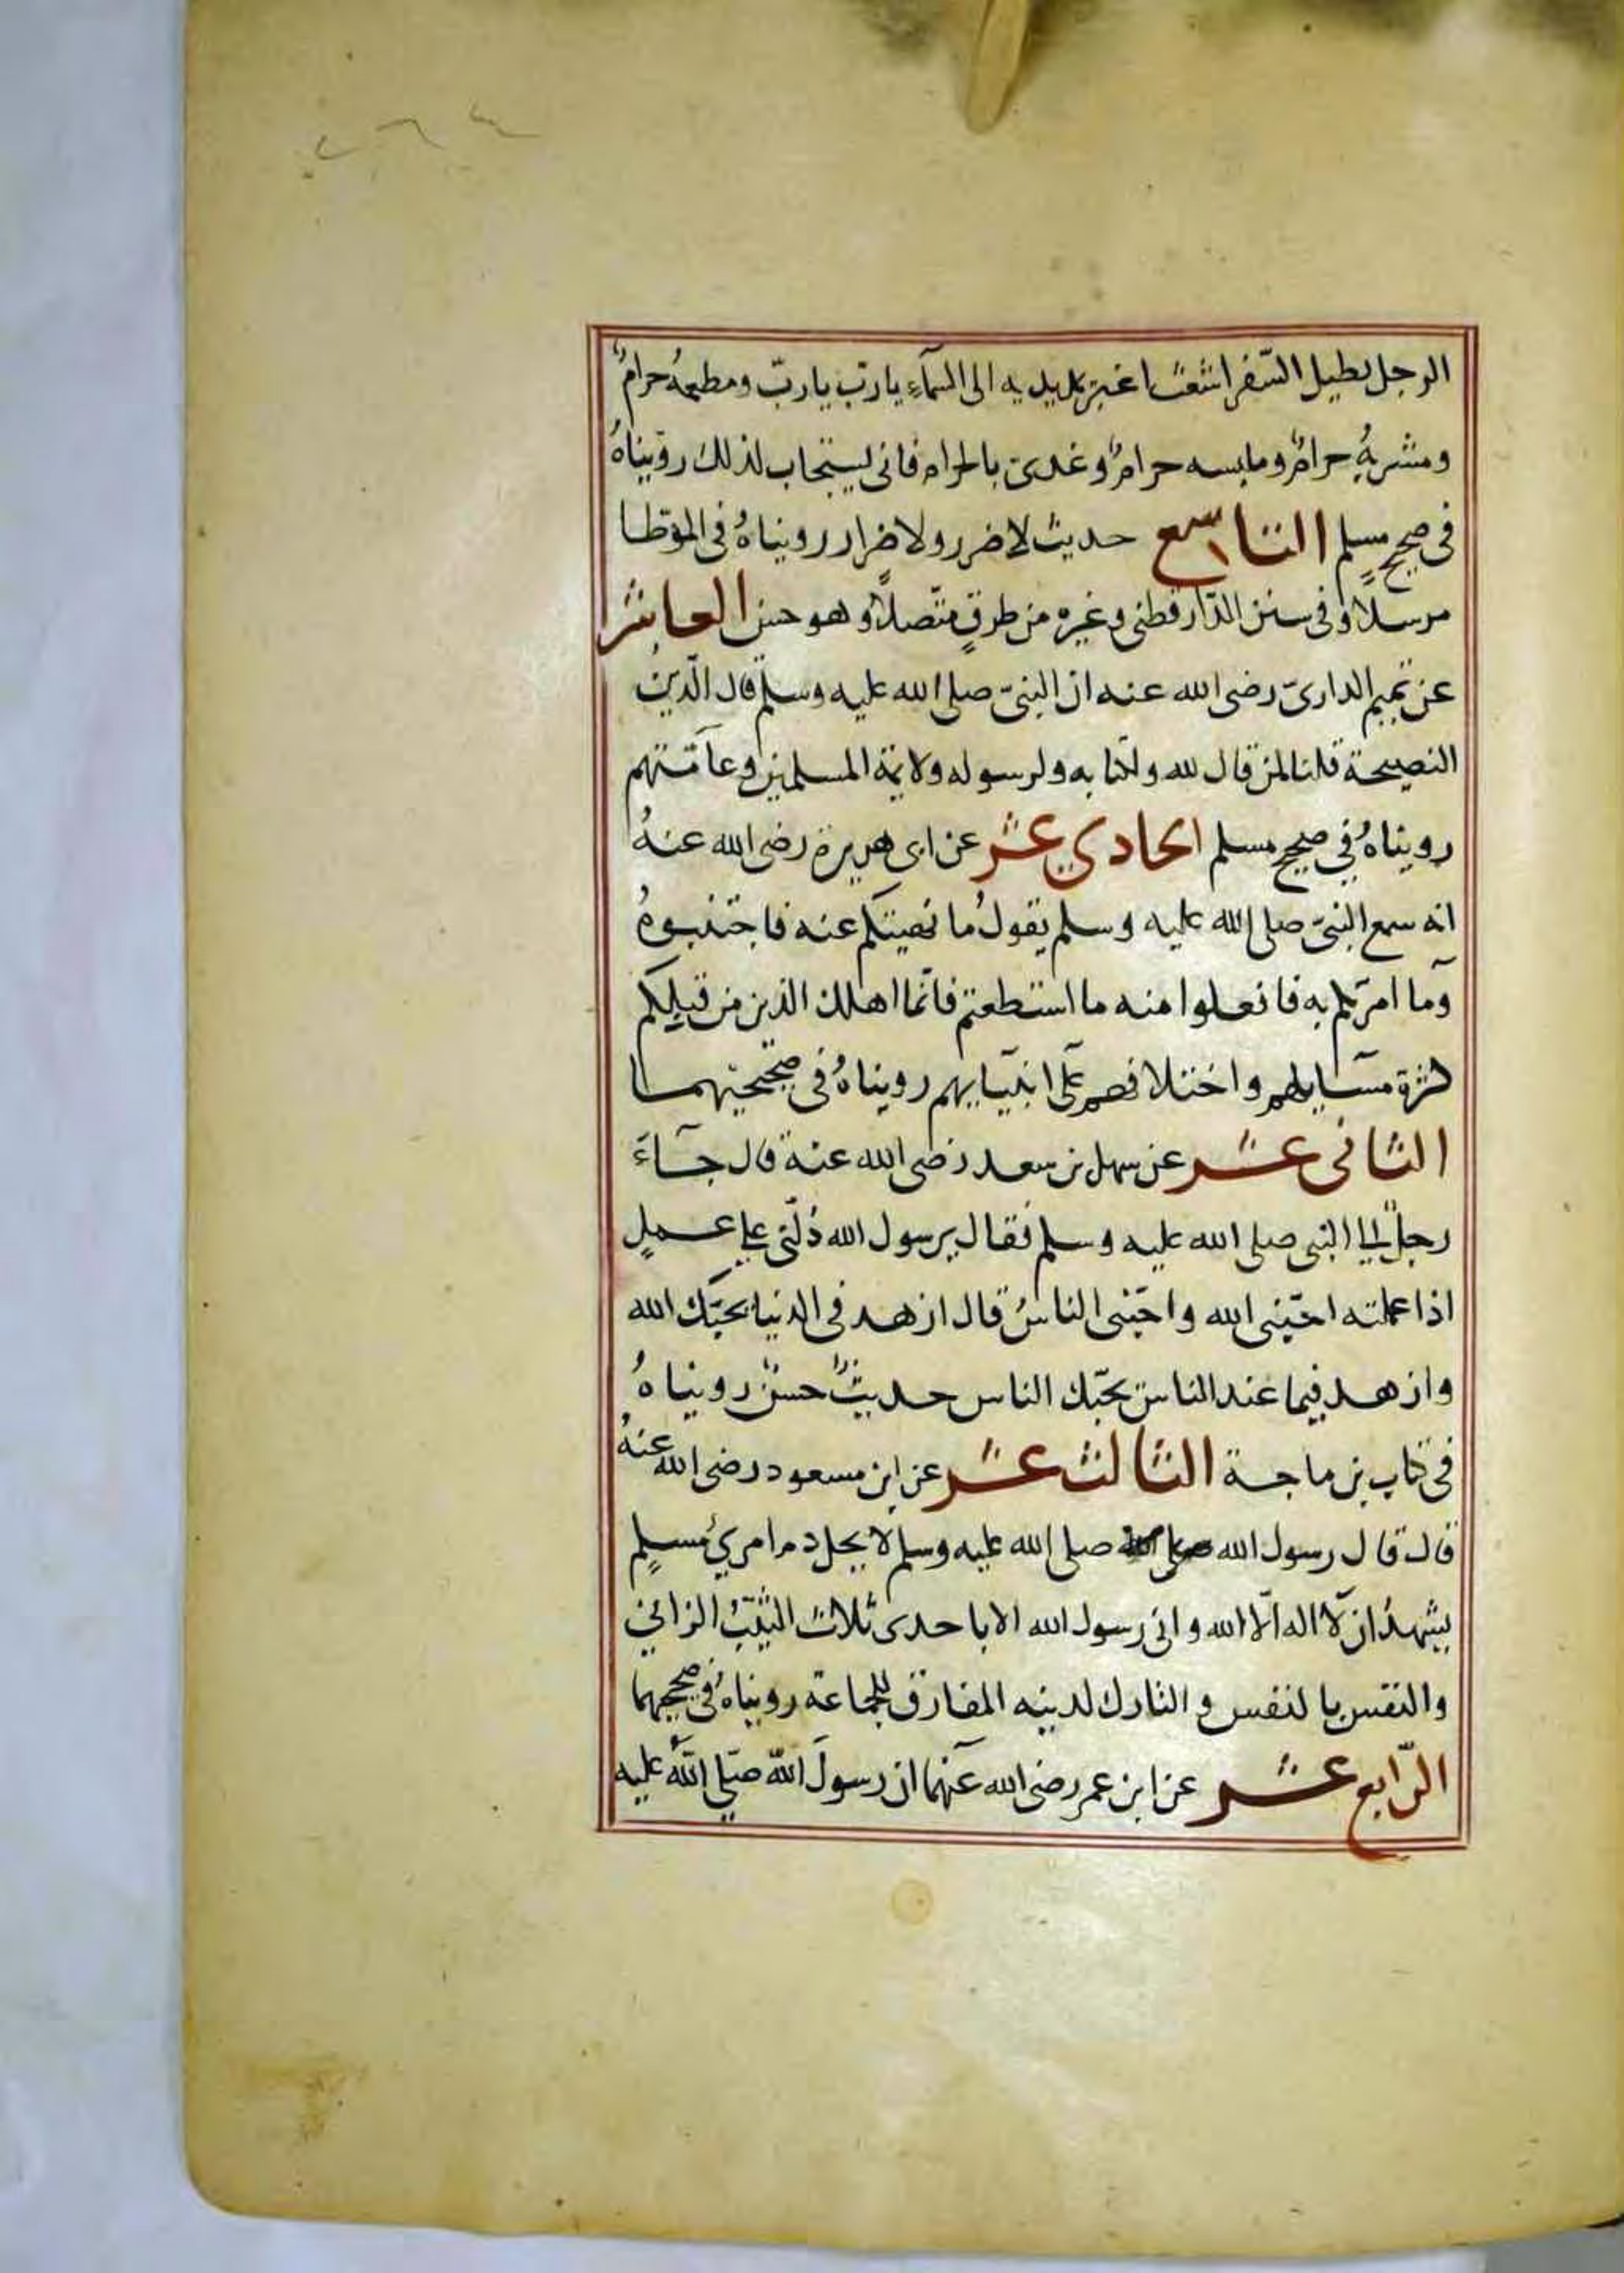 الرجل يطيل السّفر اشعث اغبر يمد يديه الى السمآء يا ربّ يا ربّ ومطعمهُ حرامٌ
ومشربهُ حرامٌ وملبسه حرامٌ وغدى بالحرام فانى يستجاب لذلك رويناهُ
فى صحيح مسلمٍ التاسع حديث لا ضرر ولا ضرار رويناهُ فى الموّطا
مرسلاً وفى سنن الدّارقطنى وغيره من طرقٍ متّصلاً وهو حسن العاشر
عن تميم الدارىّ رضى الله عنه ان النبىّ صلى الله عليه وسلّم قال الّدينُ
النصيحة قلنا لمن قال لله ولكتابه ولرسوله ولايمة المسلمين وعامّتهم
رويناهُ في صحيح مسلم الحادي عشر عن ابى هريرة رضى الله عنهُ
انه سمع النبىّ صلى الله عليه وسلم يقولُ ما نهيتكم عنه فاجتنبوهُ
وما امرتكم به فافعلوا منه ما استطعتم فانّما اهلك الذين من قبلِكم
كثرة مسايلهم واختلافهم على انبيايهم رويناهُ فى صحيحيهما
الثانى عشر عن سهل بن سعد رضى الله عنه قال جآءَ
رجلٌ الى النبى صلى الله عليه وسلم فقال يرسول الله دُلّنى على عملٍ
اذا عملته احبّنى الله واحبّنى الناسُ قال ازهد فى الدنيا يحبّك الله
وازهد فيما عند الناس يحبّك الناس حديثٌ حسنٌ رويناهُ
فى كتاب بن ماجة الثالث عشر عن ابن مسعود رضى الله عنهُ
قال قال رسول الله صلى الله صلى الله عليه وسلم لا يحل دم امرئ مسلمٍ
يشهدُ ان لّا اله الّا الله وانى رسول الله الا باحدى ثلاث الثيّبُ الزاني
والنفس بالنفس والتارك لدينه المفارق للجماعة رويناهُ فى صحيحيهما
الرّابع عشر عن ابن عمر رضى الله عنهما ان رسولَ الله صلّي اللّهُ عليه